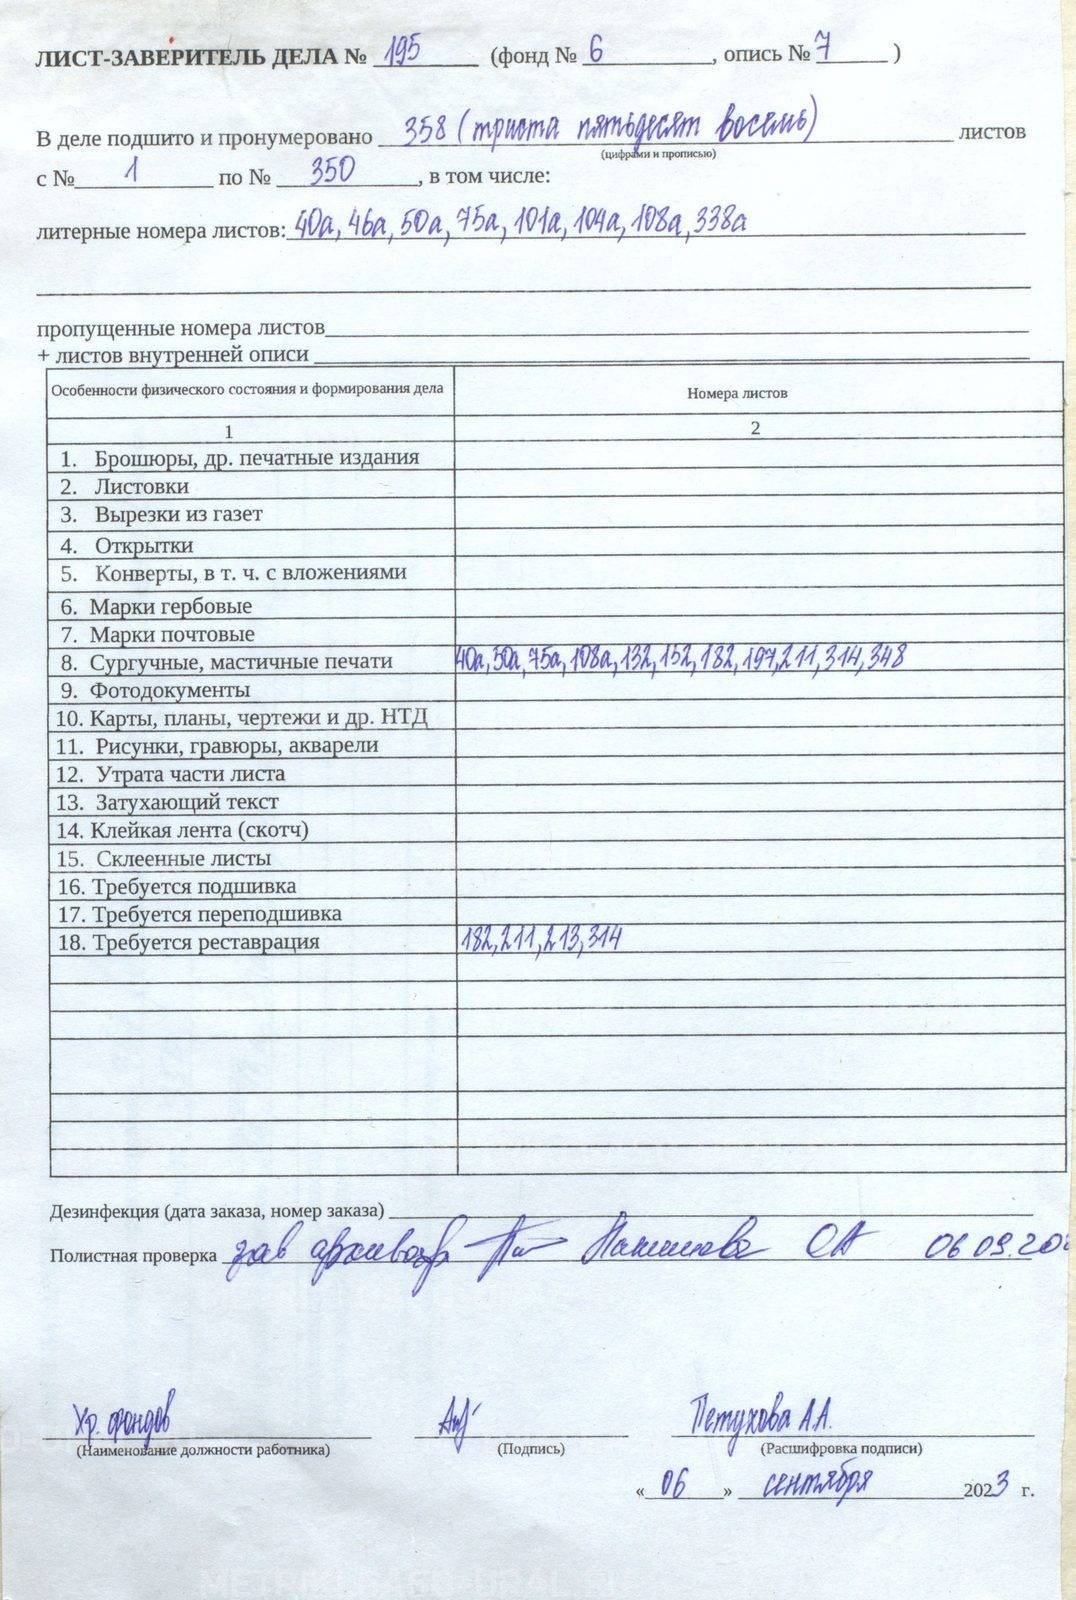 ЛИСТ-ЗАВЕРИТЕЛЬ ДЕЛА № 195 (фонд № 6, опись № 7)
В деле подшито и пронумеровано 358 (триста пятьдесят восемь) листов
(цифрами и прописью)
с № 1 по № 350, в том числе:
литерные номера листов: 40а, 46а, 50а, 75а, 101а, 104а, 108а, 338а
пропущенные номера листов
+ листов внутренней описи
Особенности физического состояния и формирования дела Номера листов
1 2
1. Брошюры, др. печатные издания
2. Листовки
3. Вырезки из газет
4. Открытки
5. Конверты, в т. ч. с вложениями
6. Марки гербовые
7. Марки почтовые
8. Сургучные, мастичные печати 40а, 50а, 75а, 108а, 132, 152, 182, 197, 211, 314, 348
9. Фотодокументы
10. Карты, планы, чертежи и др. НТД
11. Рисунки, гравюры, акварели
12. Утрата части листа
13. Затухающий текст
14. Клейкая лента (скотч)
15. Склеенные листы
16. Требуется подшивка
17. Требуется переподшивка
18. Требуется реставрация 182, 211, 213, 314
Дезинфекция (дата заказа, номер заказа)
Полистная проверка зав ОА 06 09.20
Хр. фондов Петухова А.А.
(Наименование должности работника) (Подпись) (Расшифровка подписи)
« 06 » сентября 2023 г.